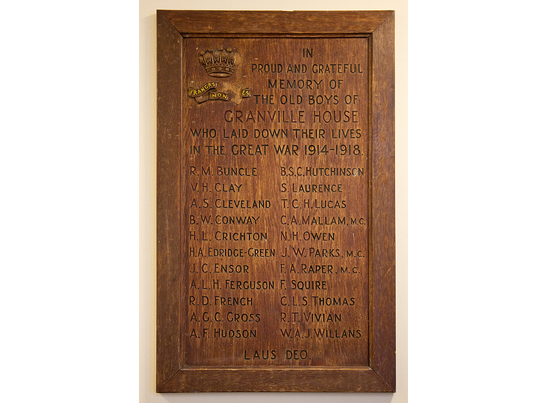 FRANGAS NON
IN
PROUD AND GRATEFUL
MEMORY OF
THE OLD BOYS OF
GRANVILLE HOUSE
WHO LAID DOWN THEIR LIVES
IN THE GREAT WAR 1914-1918.
R. M. BUNCLE
V. H. CLAY
A. S. CLEVELAND
B. W. CONWAY
H. L. CRICHTON
H. A. EDRIDGE-GREEN
J. C. ENSOR
A. L. H. FERGUSON
R. D. FRENCH
A. G. C. GROSS
A. F. HUDSON
B. S. C. HUTCHINSON
S. LAURENCE
T. C. H. LUCAS
C. A. MALLAM, M.C.
N. H. OWEN
J. W. PARKS, M.C.
F. A. RAPER, M.C.
F. SQUIRE
C. L. S. THOMAS
R. T. VIVIAN
W. A. J. WILLANS
LAUS DEO